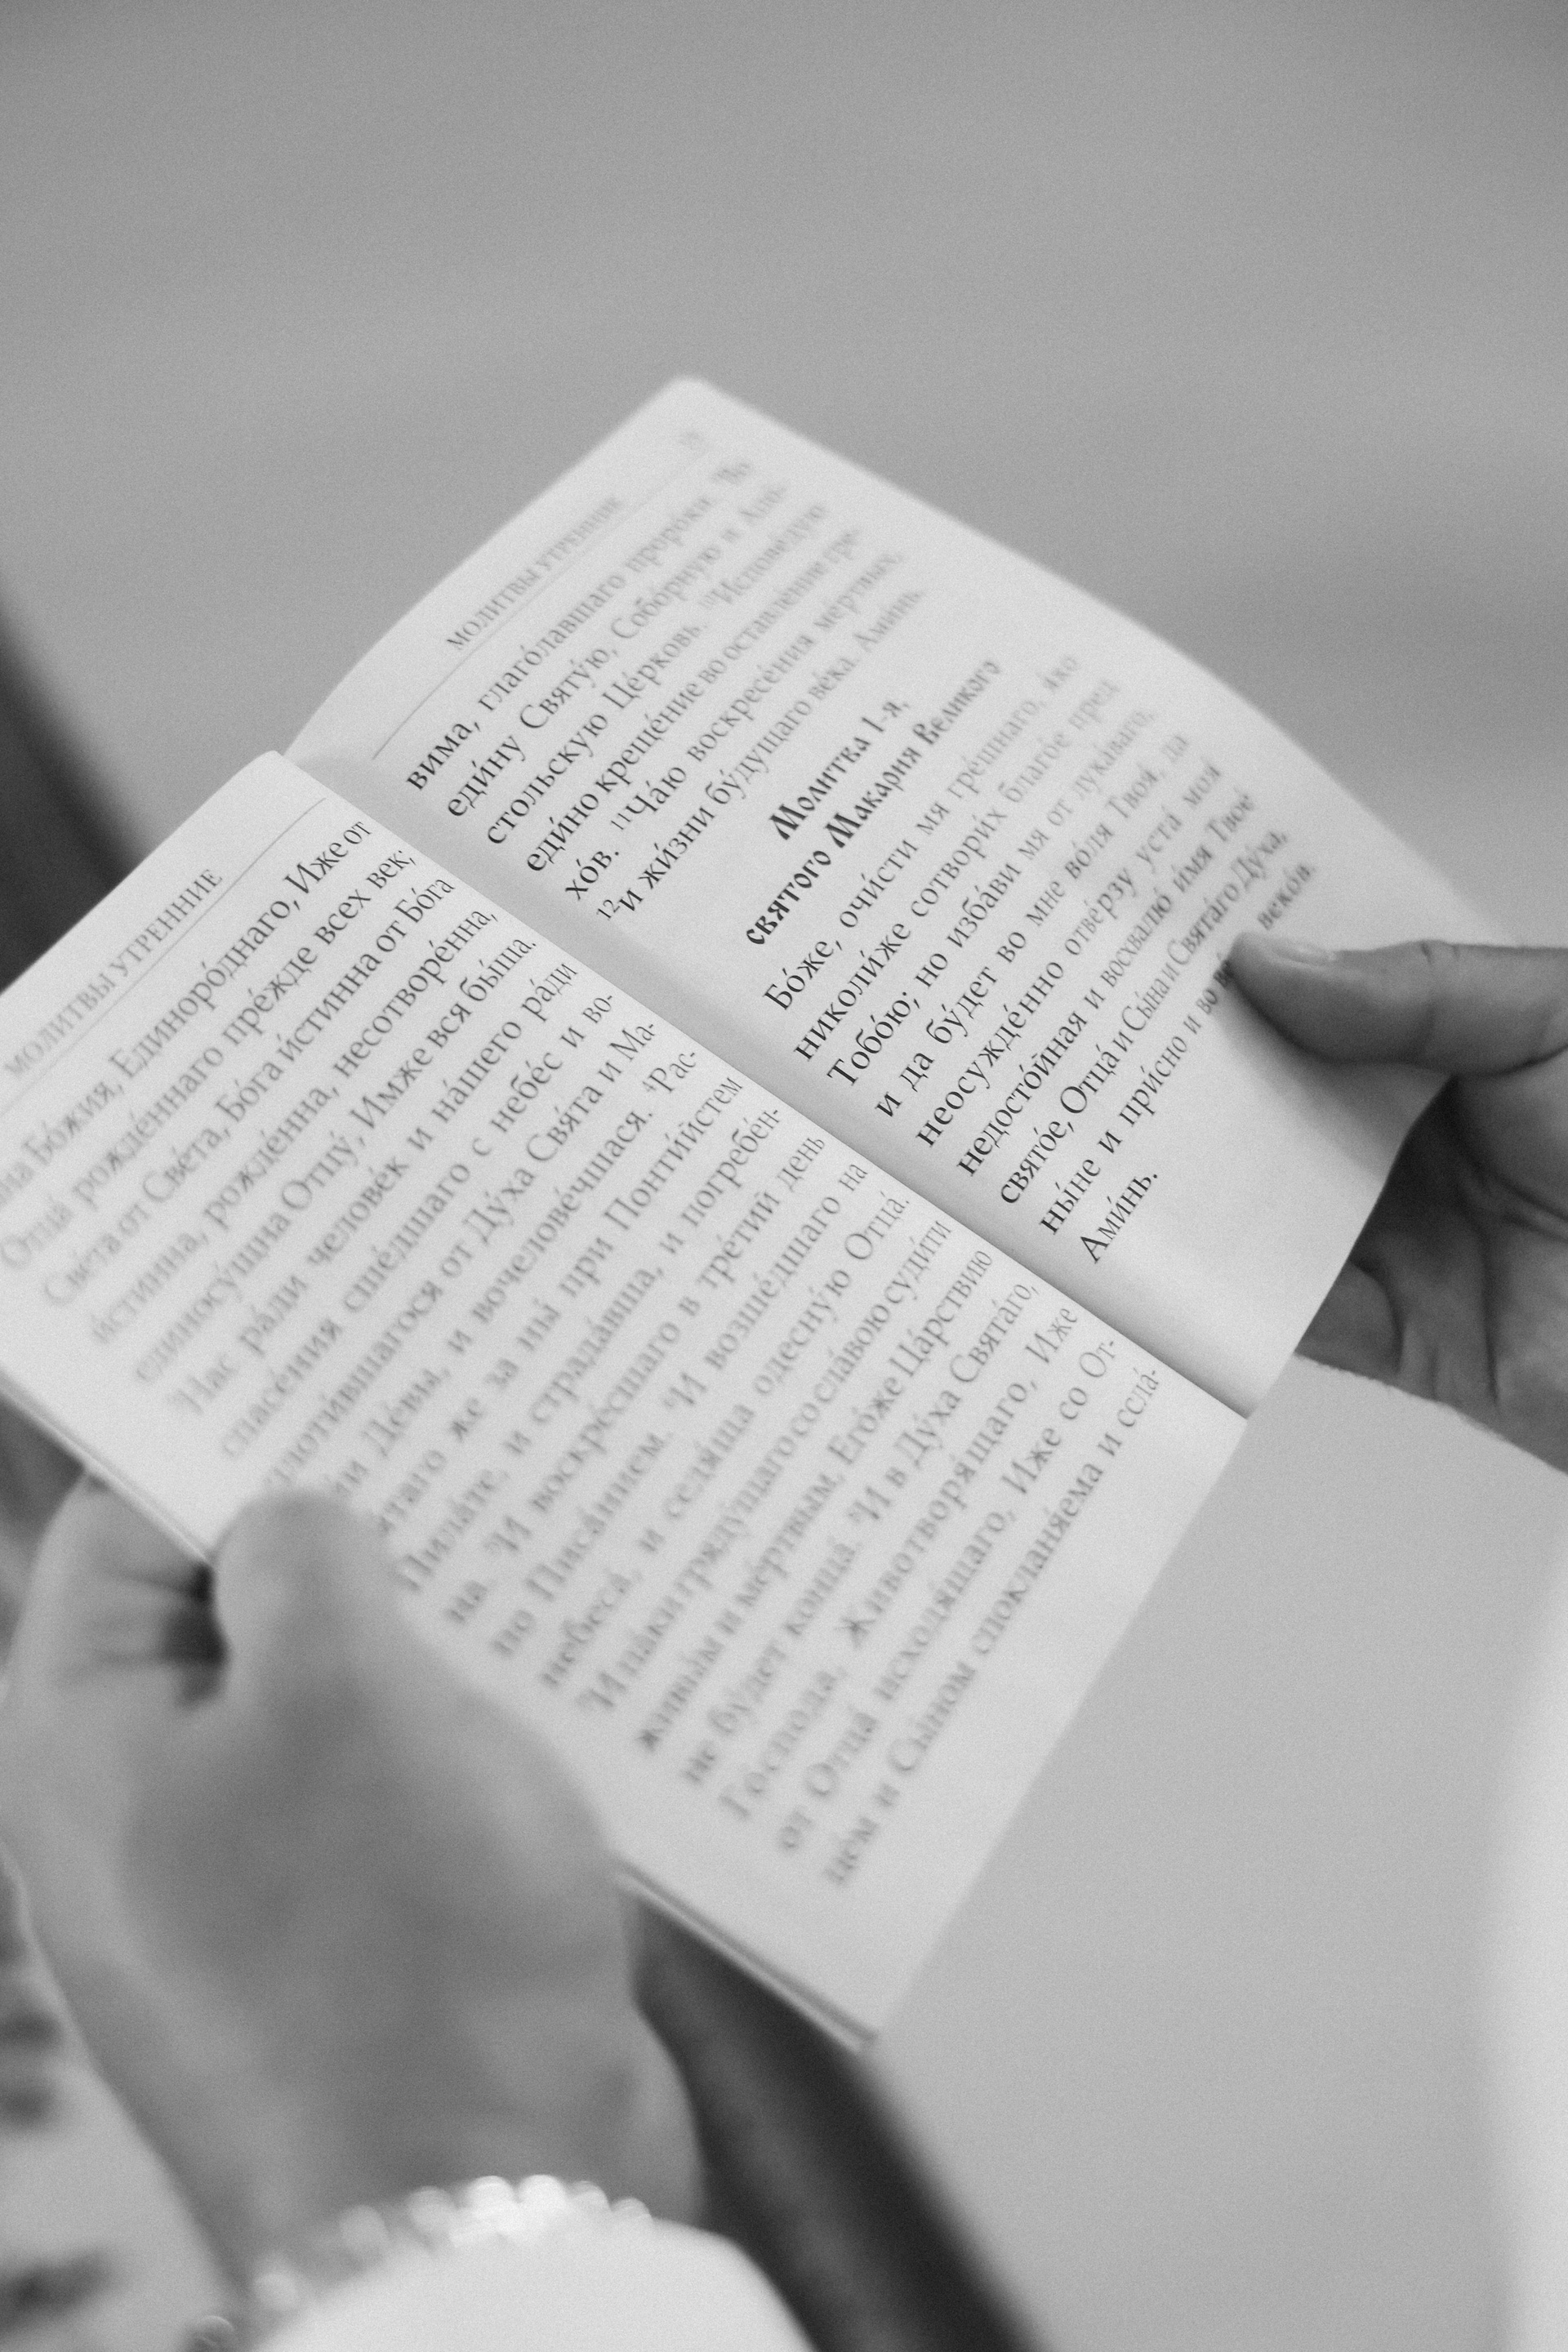 МОЛИТВЫ УТРЕННИЕ
на Бо́жия, Единоро́днаго, Иже от
Отца́ рожде́ннаго пре́жде всех век;
Све́та от Све́та, Бо́га и́стинна от Бо́га
и́стинна, рожде́нна, несотворе́нна,
единосу́щна Отцу́, Имже вся бы́ша.
³Нас ра́ди челове́к и на́шего ра́ди
спасе́ния сше́дшаго с небе́с и во-
плоти́вшагося от Ду́ха Свя́та и Ма-
Де́вы, и вочелове́чшася. ⁴Рас-
же за ны́ при Понти́йстем
Пила́те, и страда́вша, и погребе́н-
на. ⁵И воскре́сшаго в тре́тий день
по Писа́нием. ⁶И возше́дшаго на
небеса́, и седя́ща одесну́ю Отца́.
⁷И па́ки гряду́щаго со сла́вою суди́ти
живы́м и ме́ртвым, Его́же Ца́рствию
не бу́дет конца́. ⁸И в Ду́ха Свята́го,
Го́спода, Животворя́щаго, Иже
от Отца́ исходя́щаго, Иже со От-
це́м и Сы́ном спокланя́ема и ссла́-
МОЛИТВЫ УТРЕННИЕ
вима, глаго́лавшаго проро́ки. ⁹Во
еди́ну Святу́ю, Собо́рную и Апо-
стольскую Це́рковь. ¹⁰Испове́дую
еди́но креще́ние во оставле́ние гре-
хо́в. ¹¹Ча́ю воскресе́ния ме́ртвых,
¹²и жи́зни бу́дущаго ве́ка. Ами́нь.
Молитва 1-я,
святого Макария Великого
Бо́же, очи́сти мя гре́шнаго, я́ко
николи́же сотвори́х благо́е пред
Тобо́ю; но изба́ви мя от лука́ваго,
и да бу́дет во мне во́ля Твоя́, да
неосужде́нно отве́рзу уста́ моя́
недосто́йная и восхвалю́ и́мя Твое́
свято́е, Отца́ и Сы́на и Свята́го Ду́ха,
ны́не и при́сно и во веко́в.
Ами́нь.